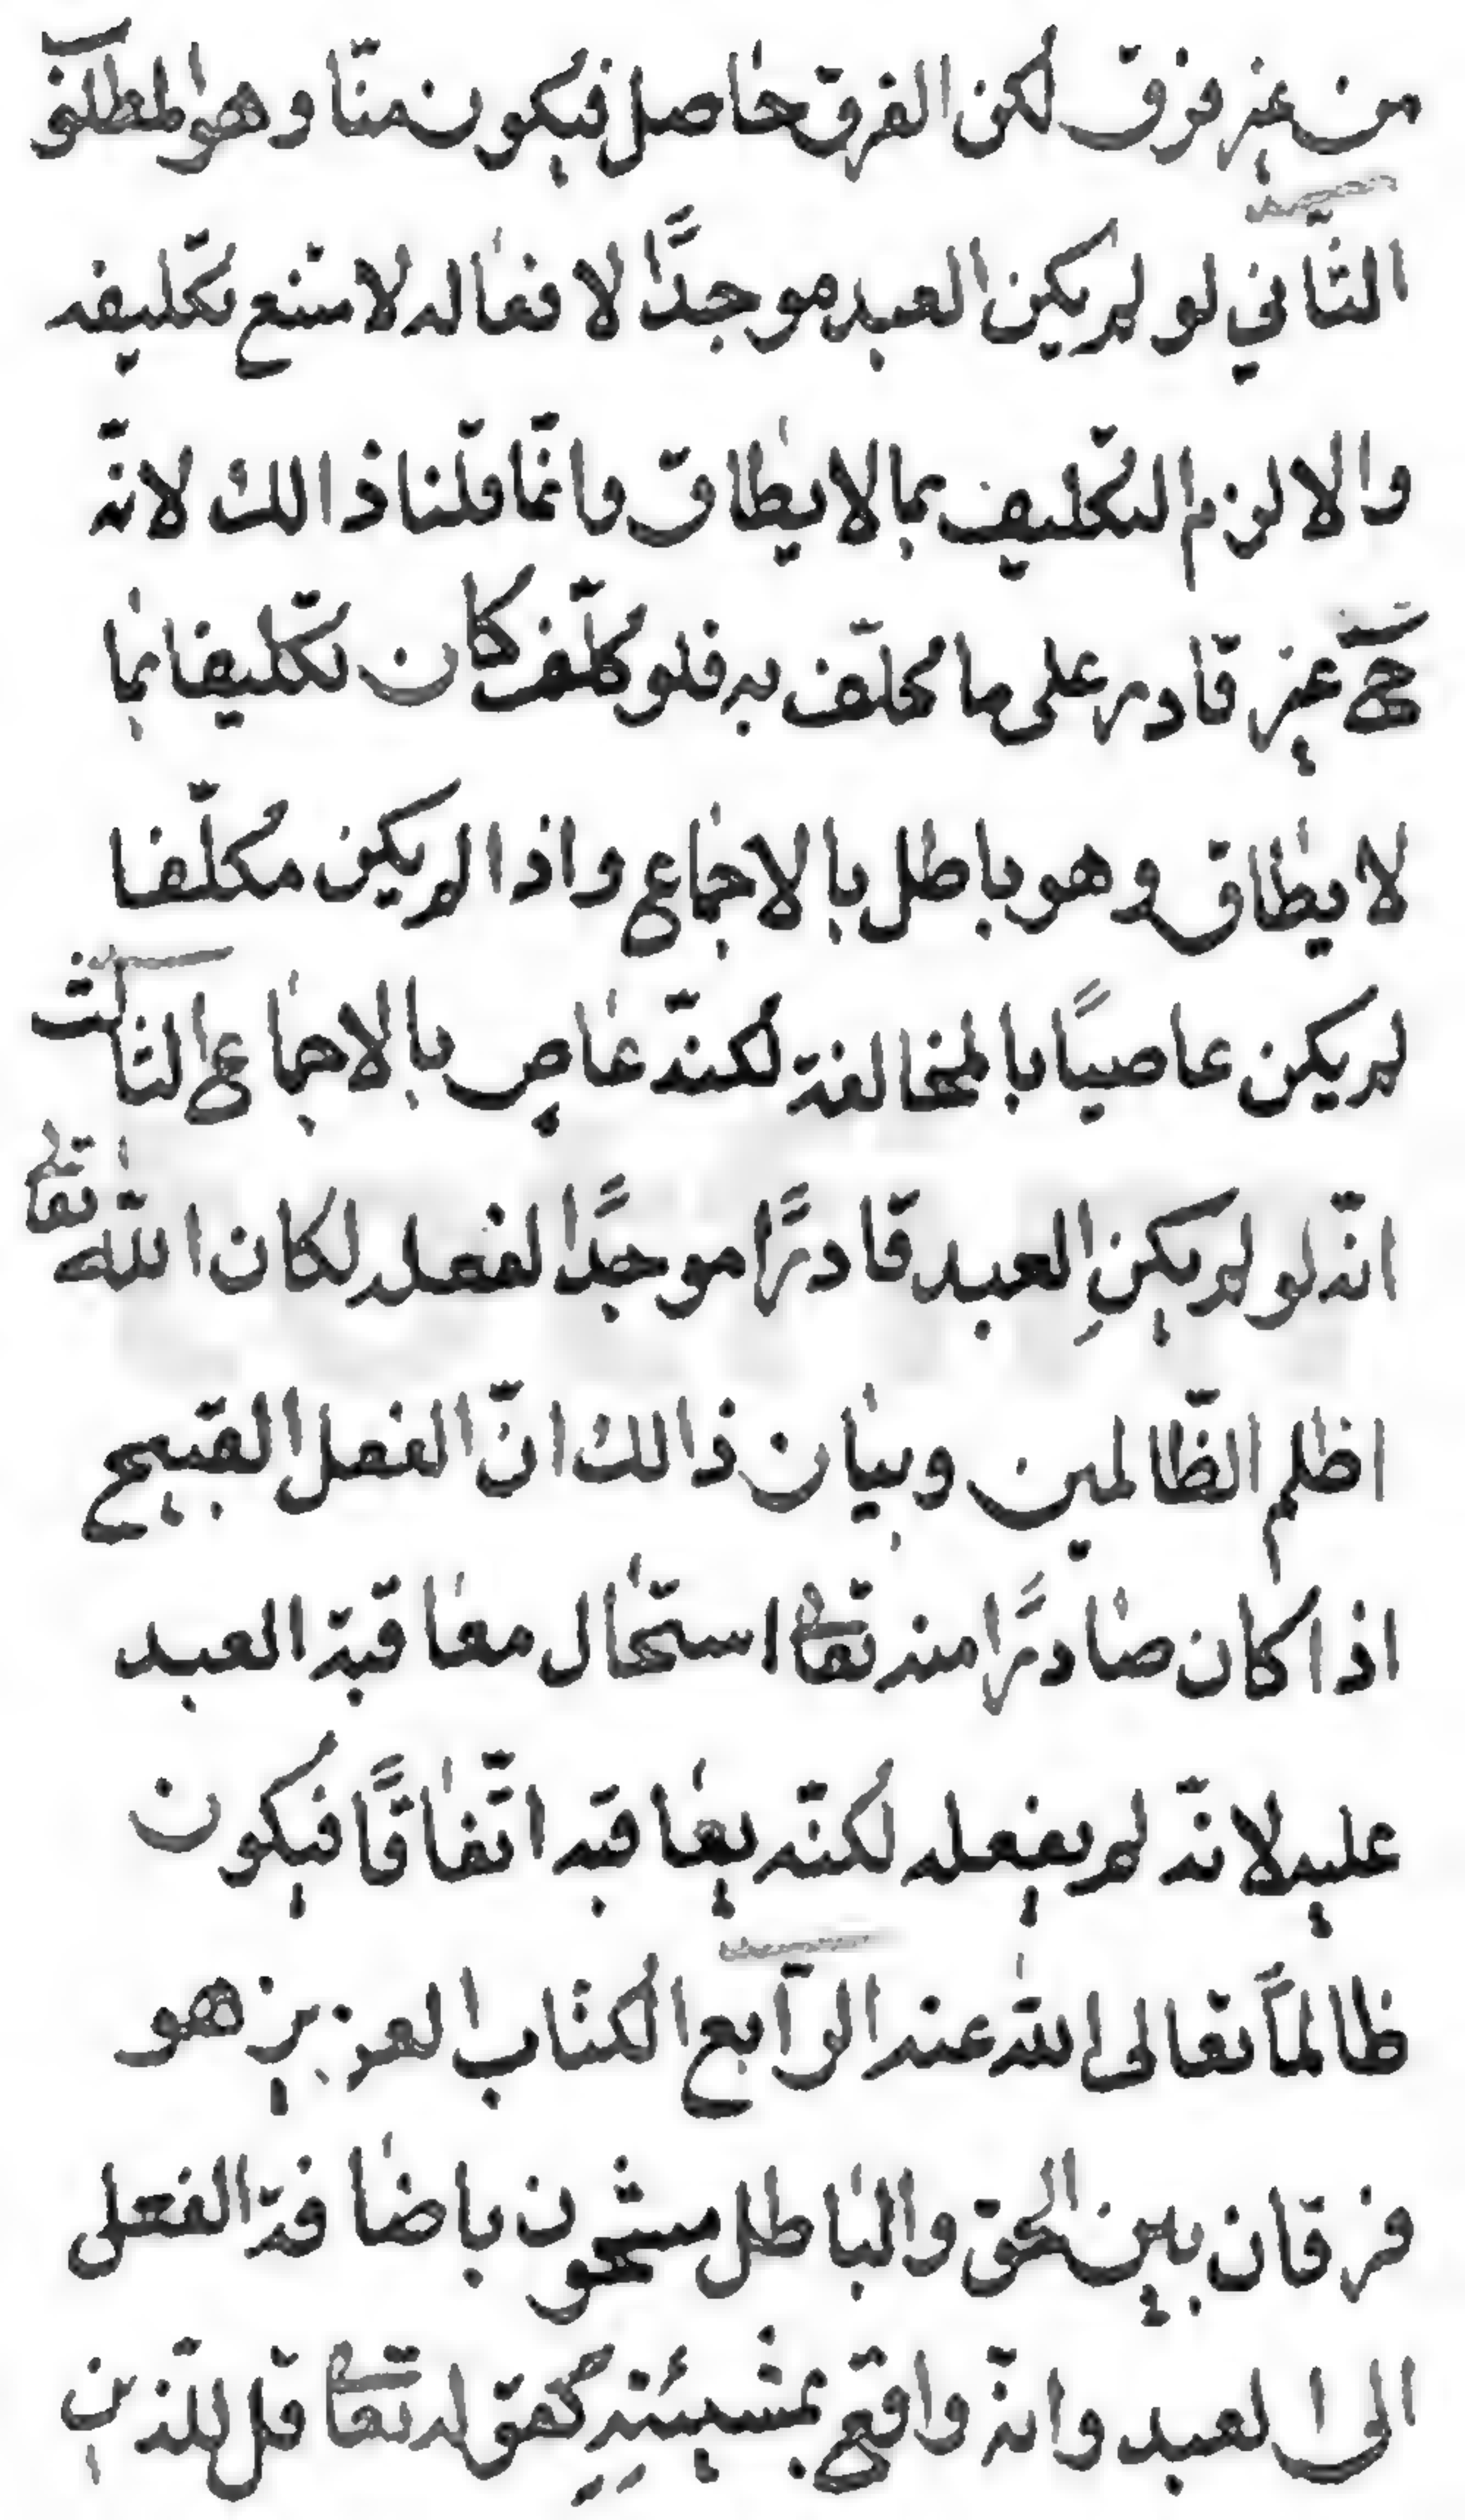 من غير فرق لكن الفرق حاصل فيكون منّا وهو المطلوب
الثّاني لو لم يكن العبد موجدًا لافعاله لامتنع تكليفه
والا لزم التكليف بما لا يطاق وانّما قلنا ذالك لانّه
ح غير قادر على ما كلّف به فلو كلّف كان تكليفا بما
لا يطاق وهو باطل بالاجماع واذا لم يكن مكلّفا
لم يكن عاصيًا بالمخالفة لكنّه عاصٍ بالاجماع الثالث
انّه لو لم يكنِ العبد قادرًا موجدًا لفعله لكان الله تعالى
اظلم الظّالمين وبيان ذالك انّ الفعل القبيح
اذا كان صادرًا منه تعالى استحال معاقبة العبد
عليه لانّه لم يفعله لكنّه يعاقبه اتّفاقًا فيكون
ظالماً تعالى الله عنه الرّابع الكتاب العزيز هو
فرقان بين الحق والباطل مشحون باضافة الفعل
الى العبد وانّه واقع بمشيئتِهِ كقوله تعالى قل للذين